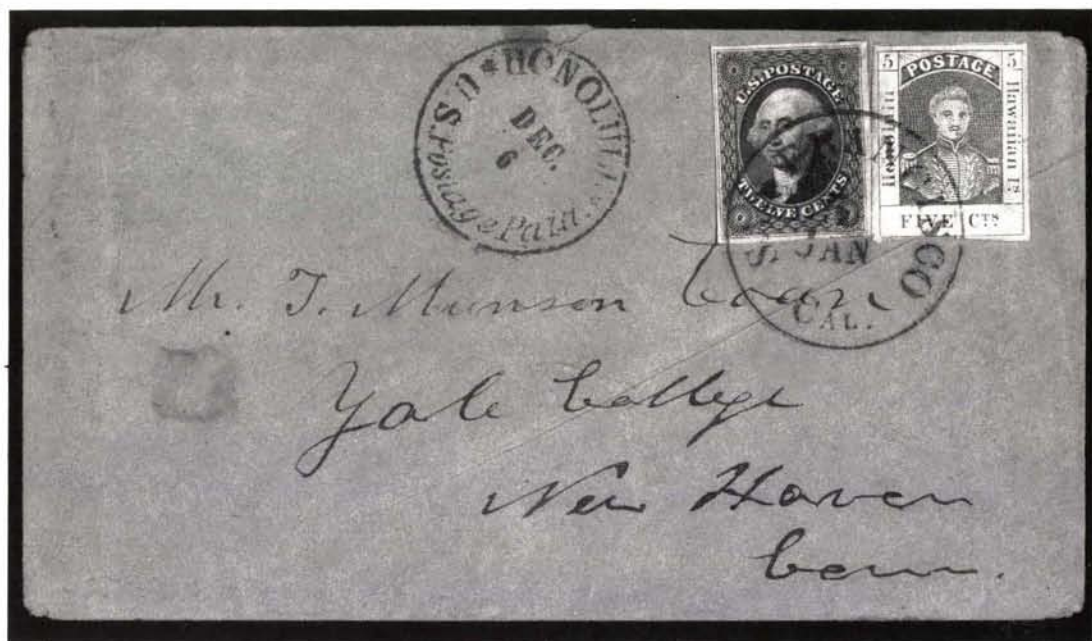 HONOLULU * U.S. Postage Paid.
DEC.
6
U.S. POSTAGE
TWELVE CENTS
5 POSTAGE 5
Honolulu
Hawaiian Is.
FIVE CTS
JAN
CAL.
Mr. T. Munson Coan
Yale College
New Haven
Conn.